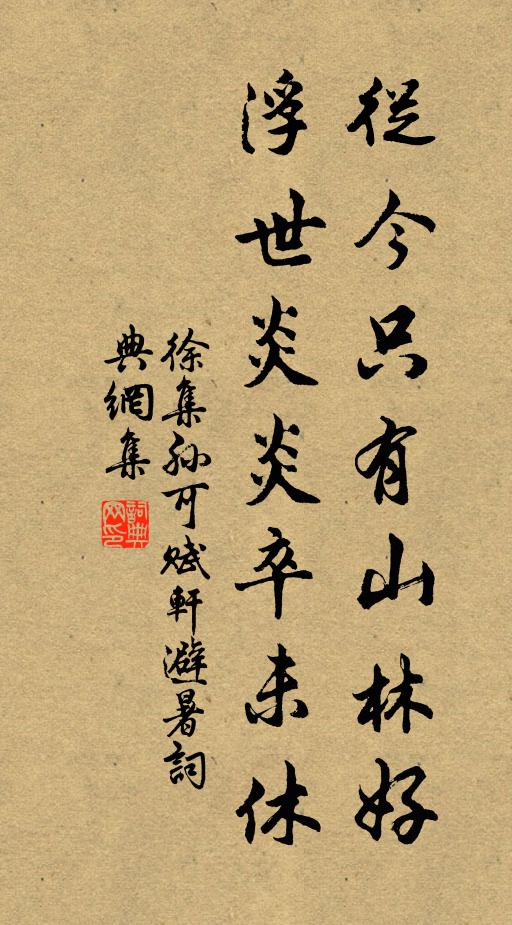 從今只有山林好
浮世炎炎卒未休
徐集孫可賦軒避暑詞
典網集
詞典
网印